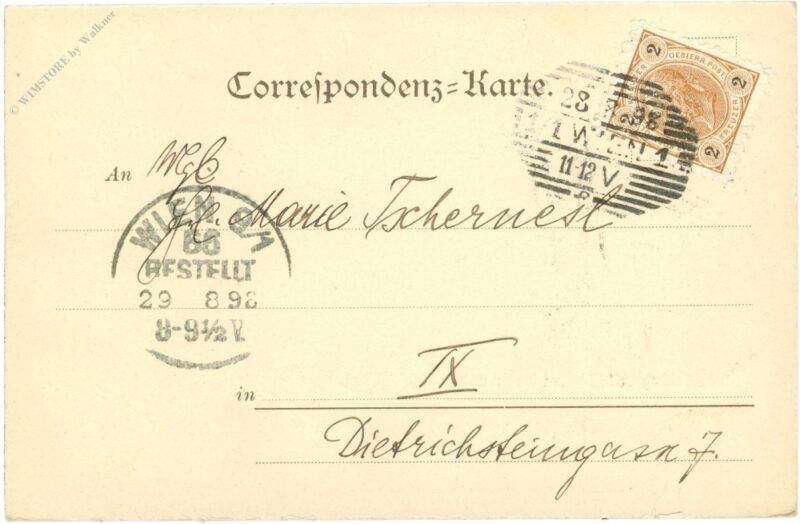 © WIMSTORE by Walkner
Correspondenz=Karte.
2 OESTERR. POST 2
KREUZER 2 KREUZER 2
28 98
1 WIEN 1
11-12 V
An Wglb
Frl. Marie Tschernest
WIEN 9/1
BESTELLT
29 8 98
8-9½ V.
IX
in
Dietrichsteingasse 7.